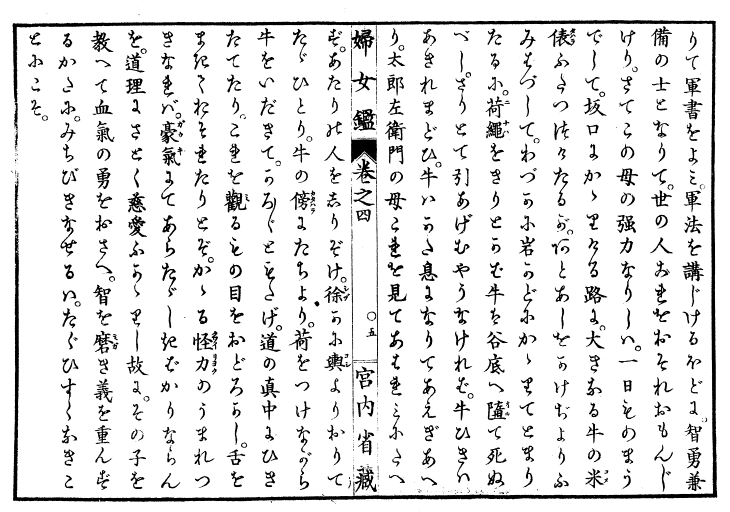 りて軍書をよミ。軍法を講じけるほどに。智勇兼
備の士となりて。世の人これをおそれおもんじ
けり。さてこの母の强力なりしハ。一日ものまう
でして。坂口にかゝりける路に。大きなる牛の米
俵ふたつつけたるが。あとあしをかけぢよりふ
みはづして。わづかに岩かどにかゝりてとまり
たるに。荷繩をきりとらば牛は谷底へ墮て死ぬ
べし。さりとて引あげむやうなければ。牛ひきハ
あきれまどひ。牛ハかた息になりてあえぎあへ
り。太郎左衛門の母これを見てあはれミにたへ
婦女鑑 巻之四 ○五 宮内省藏
ず。あたりの人をしりぞけ。徐かに輿よりおりて
たゞひとり。牛の傍にたちより。荷をつけながら
牛をいだきて。かろ〴〵ともたげ。道の真中にひき
たてたり。これを觀るもの目をおどろかし。舌を
まきておそれたりとぞ。かゝる怪力のうまれつ
きなれバ。豪氣にてあらだゝしきばかりならん
を。道理にさとく慈愛ふかゝりし故に。その子を
教へて血氣の勇をおさへ。智を磨き義を重んず
るかたに。みちびきなせるハ。たぐひすくなきこ
とにこそ。